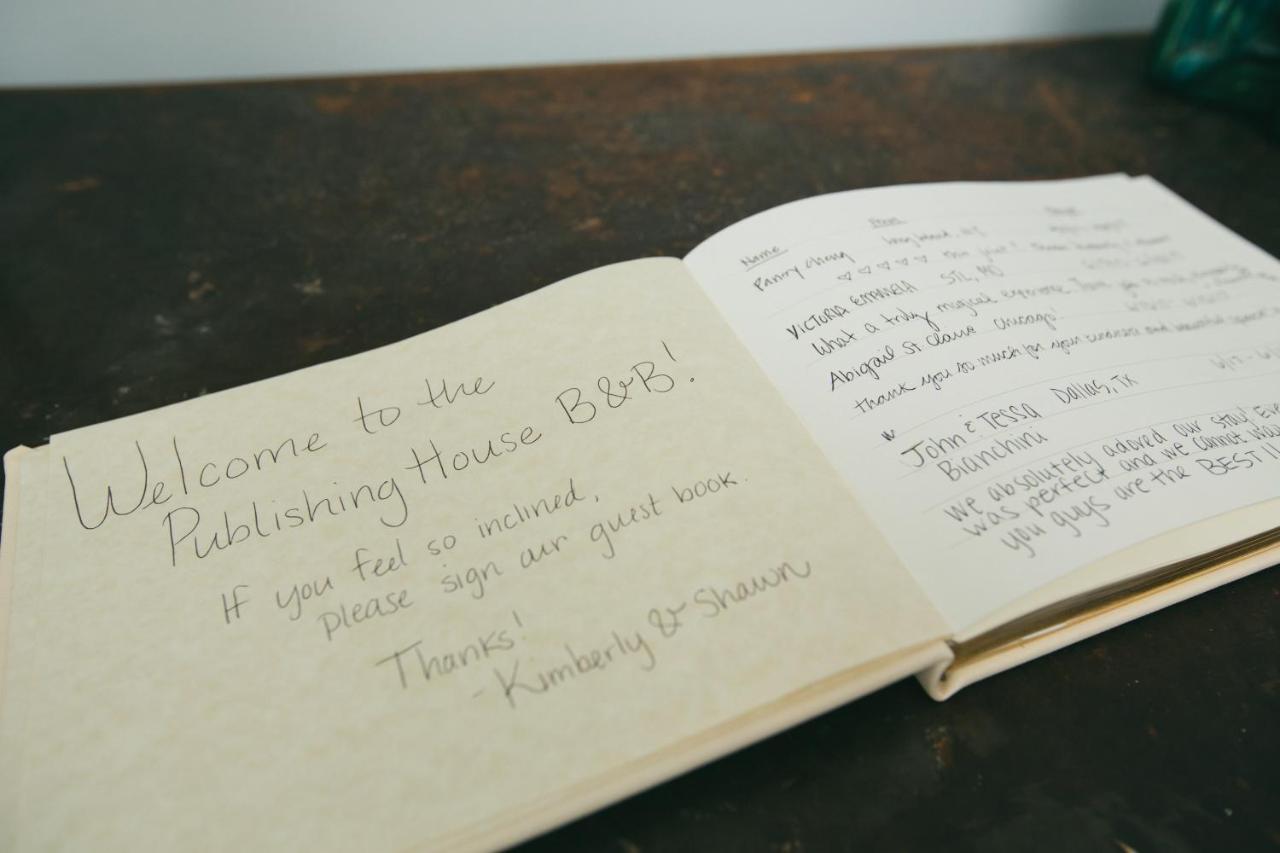 Welcome to the
Publishing House B&B!
If you feel so inclined,
please sign our guest book.
Thanks!
-Kimberly & Shawn
Name
♡ ♡ ♡ ♡ ♡
VICTORIA STL, MO
What a truly magical experience. Thank you
Abigail St Claire Chicago!
thank you so much for your and beautiful
John & Tessa Dallas, TX
Bianchini
we absolutely adored our stay!
was perfect and we cannot
you guys are the BEST